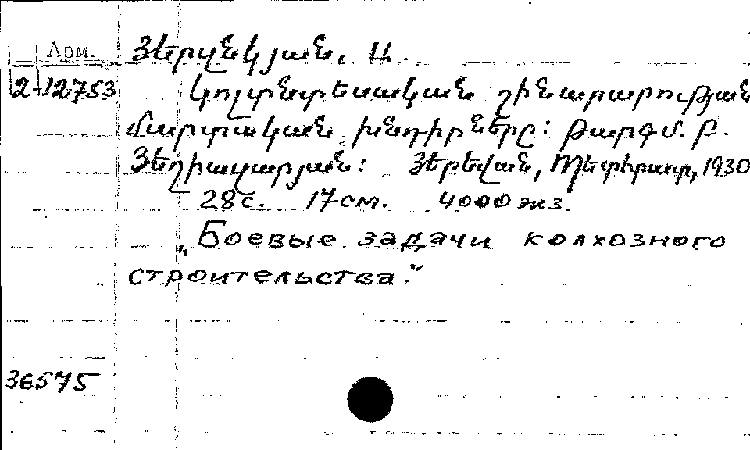 Арм.
Հերչենկյան, Ա.
2-12753
Կոլտնտեսական շինարարության
մարտական խնդիրները: Թարգմ. Բ.
Յեղիազարյան: Յերեվան, Պետհրատ, 1930
28с. 17см. 4000 экз.
„Боевые задачи колхозного
строительства."
36575